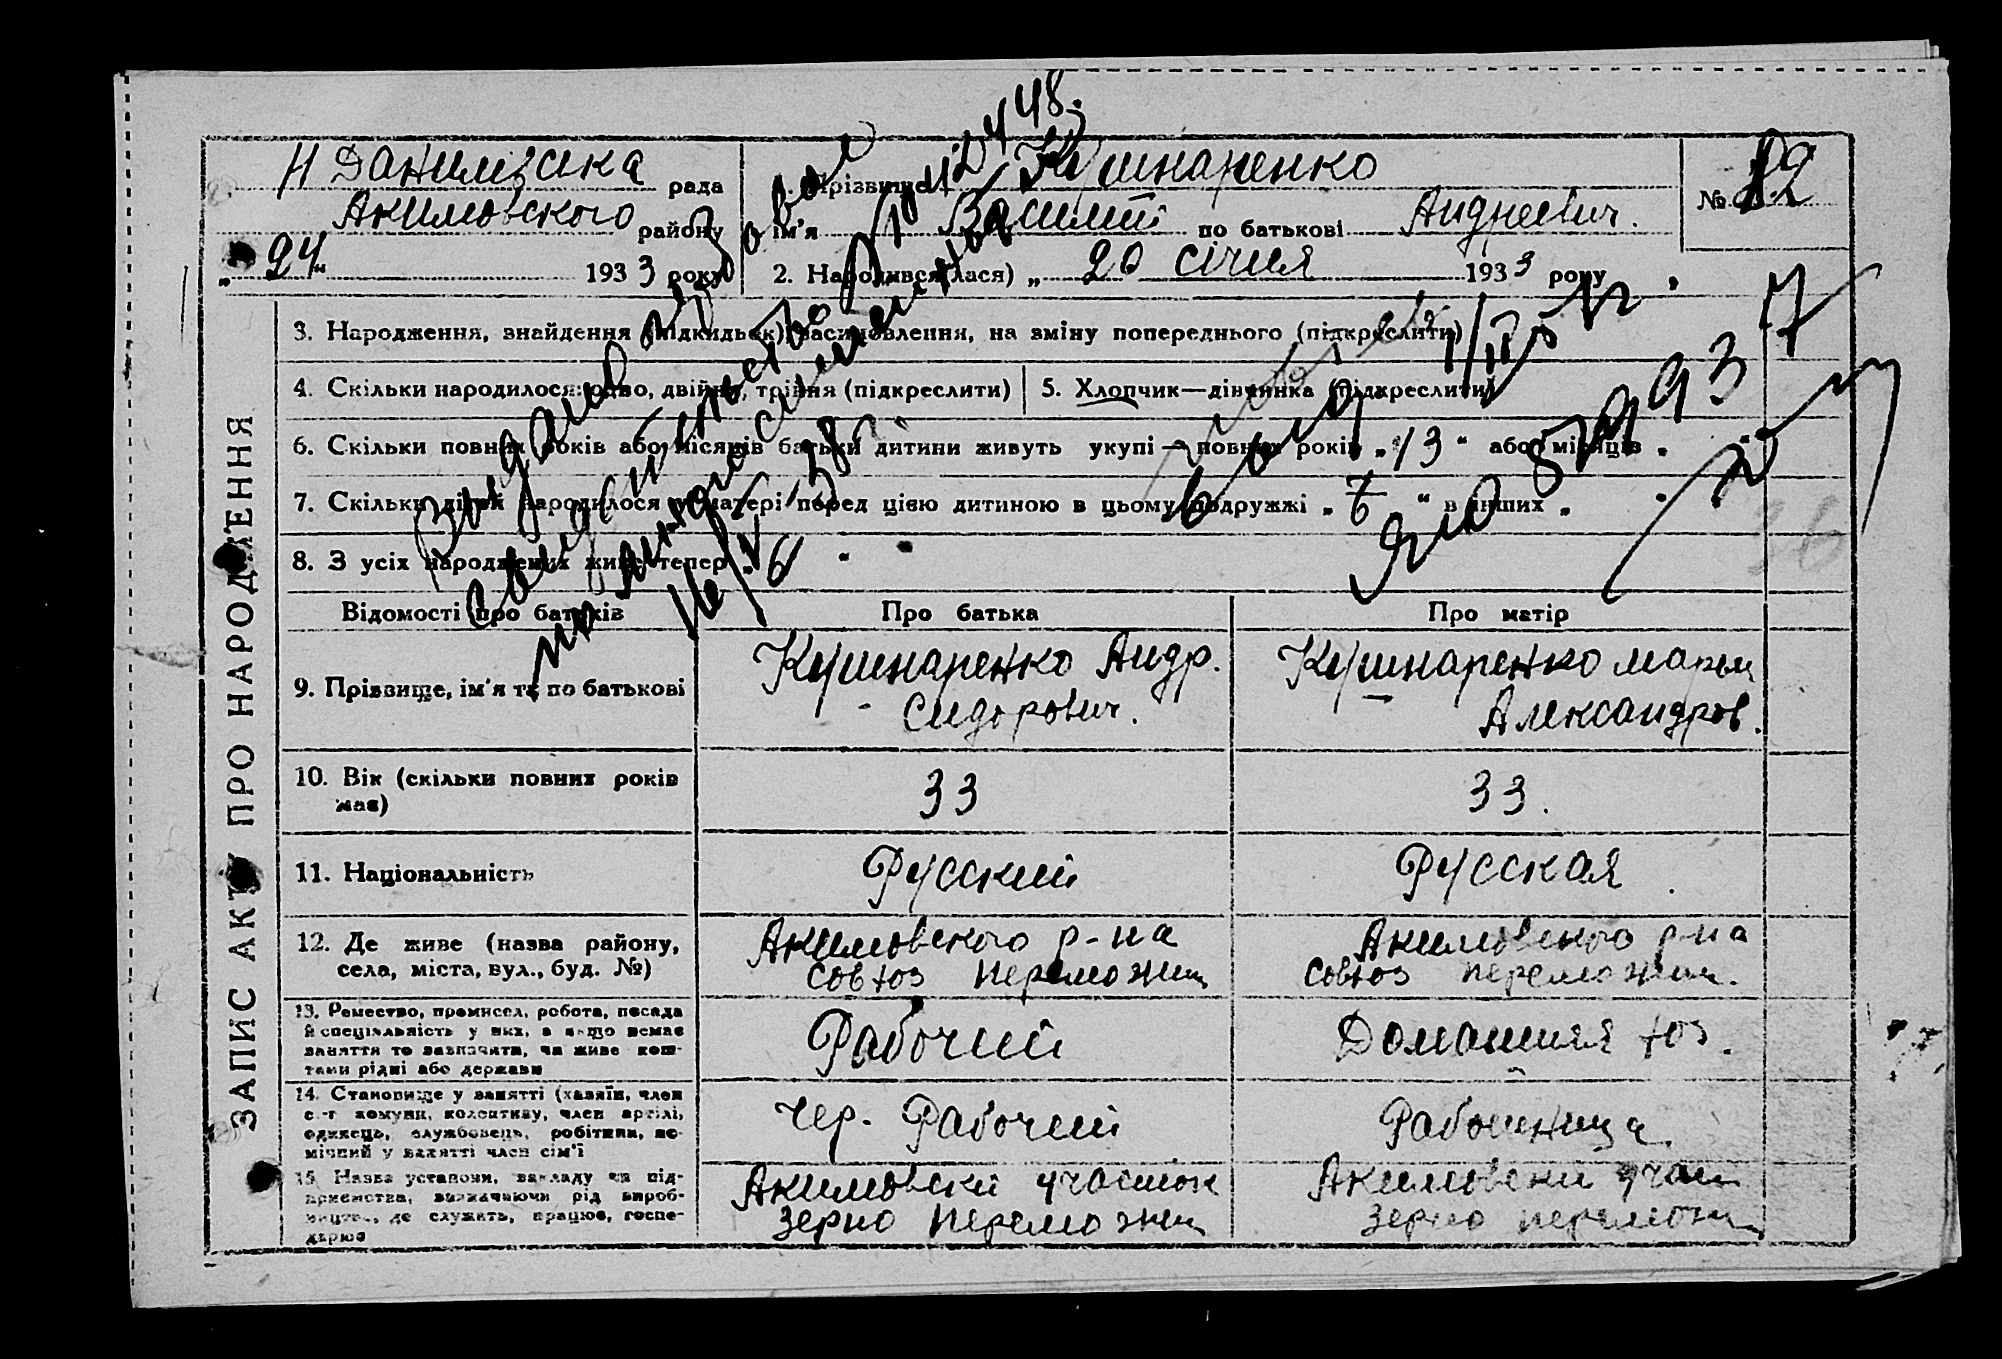 ЗАПИС АКТУ ПРО НАРОДЖЕННЯ
Н Данилівська рада
Акимовского району
„ 24 „ 1933 року
1. Прізвище Кушнаренко
ім'я Василий по батькові Андреевич.
№ 12
2. Народився(лася) „ 20 січня 1933 року
3. Народження, знайдення (підкидьок), засиновлення, на зміну попереднього (підкреслити)
4. Скільки народилося: одно, двійня, трійня (підкреслити) 5. Хлопчик—дівчинка (підкреслити)
6. Скільки повних років або місяців батьки дитини живуть укупі — повних років „ 13 “ або місяців „
7. Скільки дітей народилося у матері перед цією дитиною в цьому подружжі „ 6 “ в інших „
8. З усіх народжених живе тепер „ 6 “
Выдано повторное
свидетельство
16/V-38
Відомості про батьків Про батька Про матір
9. Прізвище, ім'я та по батькові
Кушнаренко Андр.
Сидорович.
Кушнаренко Мария
Александров.
10. Вік (скільки повних років має)
33
33.
11. Національність
Русский
Русская
12. Де живе (назва району,
села, міста, вул., буд. №)
Акимовского р-на
совхоз переможец
Акимовского р-на
совхоз переможец.
13. Ремество, промисел, робота, посада
й спеціяльність у них, а якщо немає
заняття то зазначити, чи живе кош-
тами рідні або держави
Рабочий
Домашняя хоз.
14. Становище у занятті (хазяїн, член
с.-г комуни, колективу, член артілі,
одинець, службовець, робітник, по-
мічний у занятті член сім'ї
чер. Рабочий
Работница
15. Назва установи, закладу чи під-
приємства, визначаючи рід вироб-
ництва, де служить, працює, госпо-
дарює
Акимовски участок
зерно переможец
Акимовски учас
зерно переможец